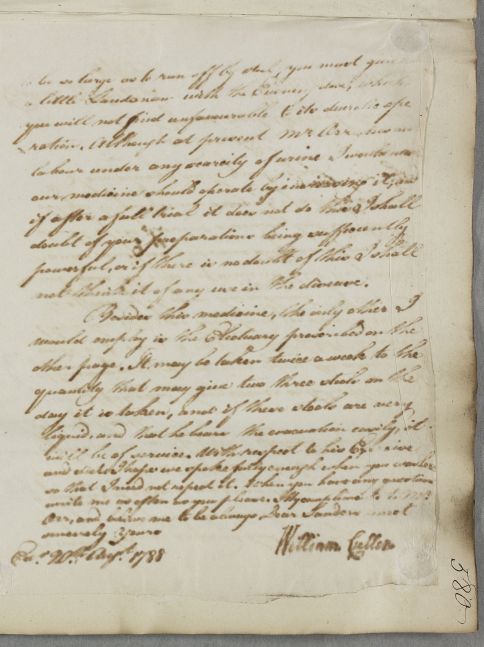 be so large as to run off by stool, you must give
a little Laudanum with the Evening dose, which
you will not find unfavourable to its diuretic ope
ration. Although at present Mr Orr does not
labour under any scarcity of urine I would
our medicine should operate by increasing it, and
if after a full trial it does not do this I shall
doubt of your preparations being sufficiently
powerful, or if there is no doubt of this I shall
not think it of any use in the disease.
Besides this medicine, the only other I
would employ is the Electuary prescribed on the
other page. It may be taken twice a week to the
quantity that may give two three stools on the
day it is taken, and if these stools are very
liquid, and that he bears the evacuation easily it
will be of service. With respect to his
and diet I hope we spoke fully enough when you were here
so that I need not repeat it. When you have any question
write me as often as you please. My compliments to Mr
Orr, and believe me to be always Dear Sanders most
sincerely yours
William Cullen
Edr. 20th Augt. 1788
580